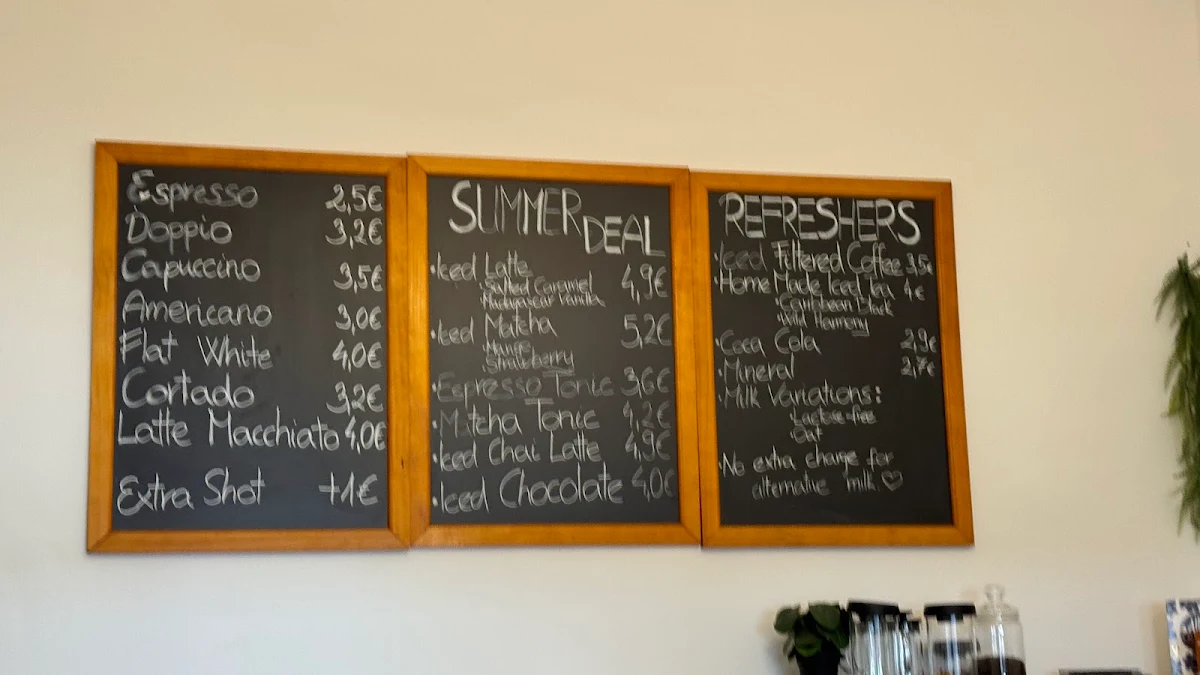 Espresso 2,5€
Doppio 3,2€
Capuccino 3,5€
Americano 3,0€
Flat White 4,0€
Cortado 3,2€
Latte Macchiato 4,0€
Extra Shot +1€
SUMMER DEAL
•Iced Latte 4,9€
•Salted Caramel
•Madagascar Vanilla
•Iced Matcha 5,2€
•Mango
•Strawberry
•Espresso Tonic 3,6€
•Matcha Tonic 4,2€
•Iced Chai Latte 4,9€
•Iced Chocolate 4,0€
REFRESHERS
•Iced Filtered Coffee 3,5€
•Home Made Iced Tea 4€
•Caribbean Black
•Wild Harmony
•Coca Cola 2,9€
•Mineral 2,7€
•Milk Variations:
•Lactose-free
•Oat
•No extra charge for
alternative milk ♡